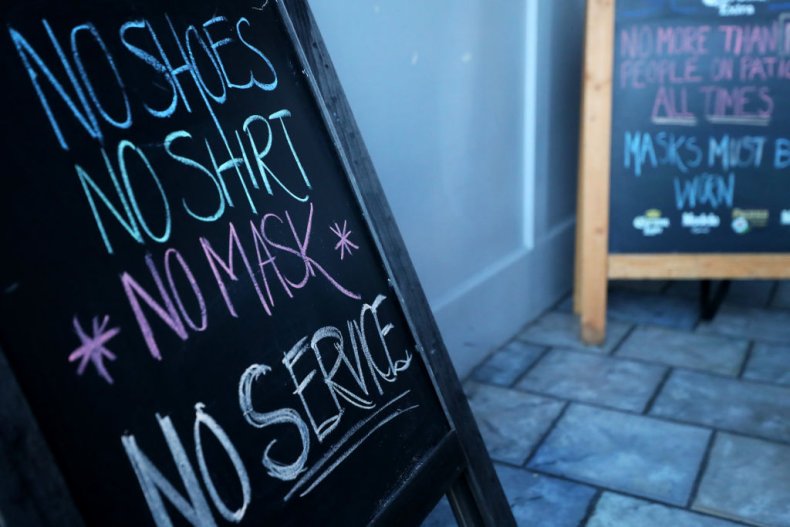 NO SHOES
NO SHIRT
* NO MASK *
NO SERVICE
Extra
NO MORE THAN
PEOPLE ON PATIO
ALL TIMES
MASKS MUST B
WORN
Corona
Modelo